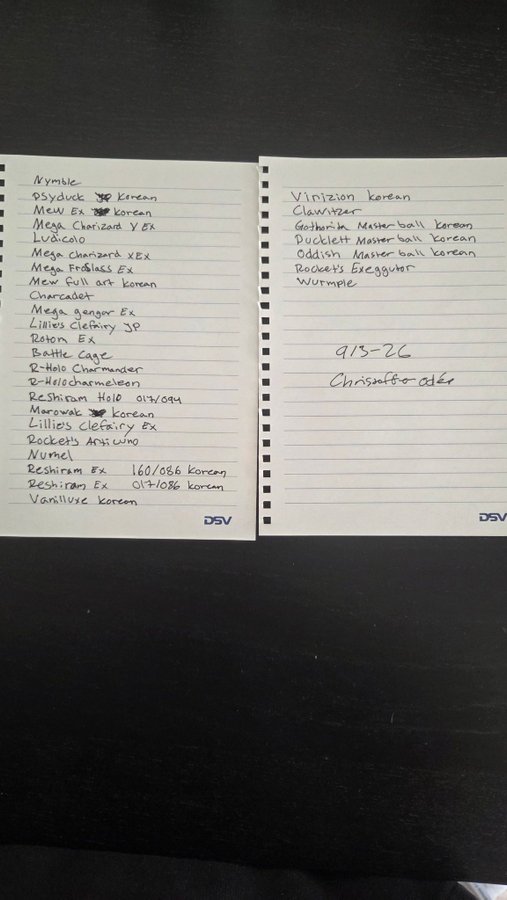 Nymble
Psyduck Korean
Mew Ex Korean
Mega Charizard Y Ex
Ludicolo
Mega Charizard X Ex
Mega Froslass Ex
Mew full art Korean
Charcadet
Mega gengar Ex
Lillie's Clefairy JP
Rotom Ex
Battle Cage
R-Holo Charmander
R-Holo charmeleon
Reshiram Holo 017/094
Marowak Korean
Lillie's Clefairy Ex
Rocket's Articuno
Numel
Reshiram Ex 160/086 Korean
Reshiram Ex 017/086 Korean
Vanilluxe Korean
DSV
Virizion Korean
Clawitzer
Gothorita Masterball Korean
Ducklett Masterball Korean
Oddish Masterball Korean
Rocket's Exeggutor
Wurmple
9/3-26
DSV